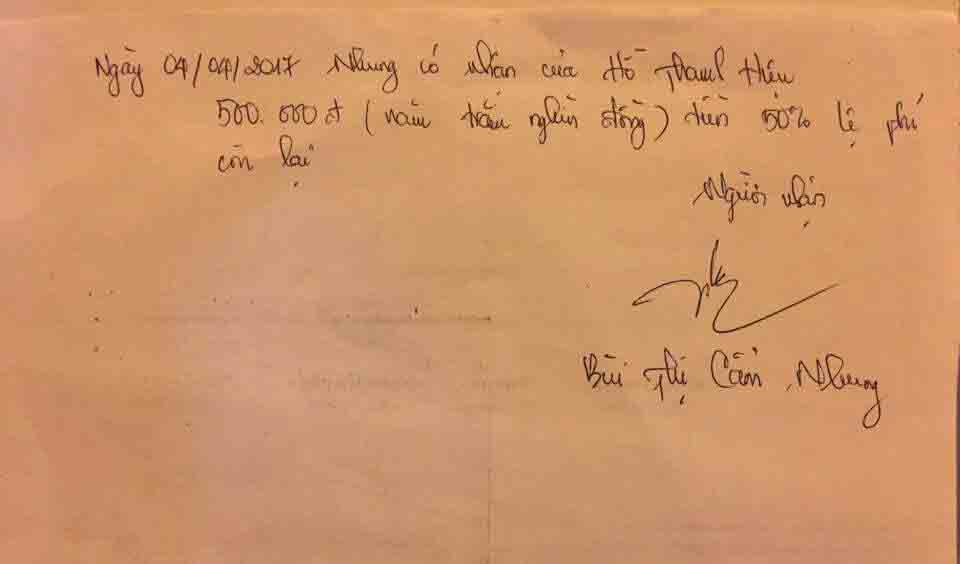 Ngày 04/04/2017 Nhung có nhận của Hồ Thanh Hiếu
500.000đ (năm trăm nghìn đồng) tiền 50% lệ phí
còn lại
Người nhận
Bùi Thị Cẩm Nhung